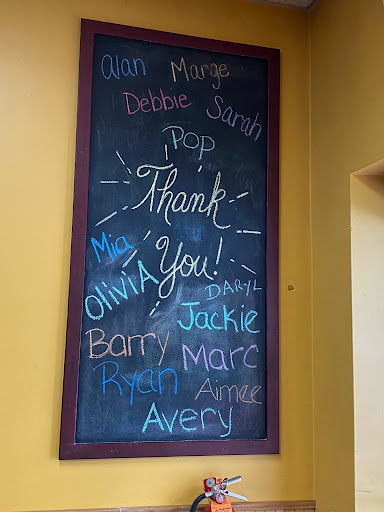 alan Marge
Debbie Sarah
Pop
Thank
You!
Mia
OliviA
DARYL
Jackie
Barry Marc
Ryan Aimee
Avery